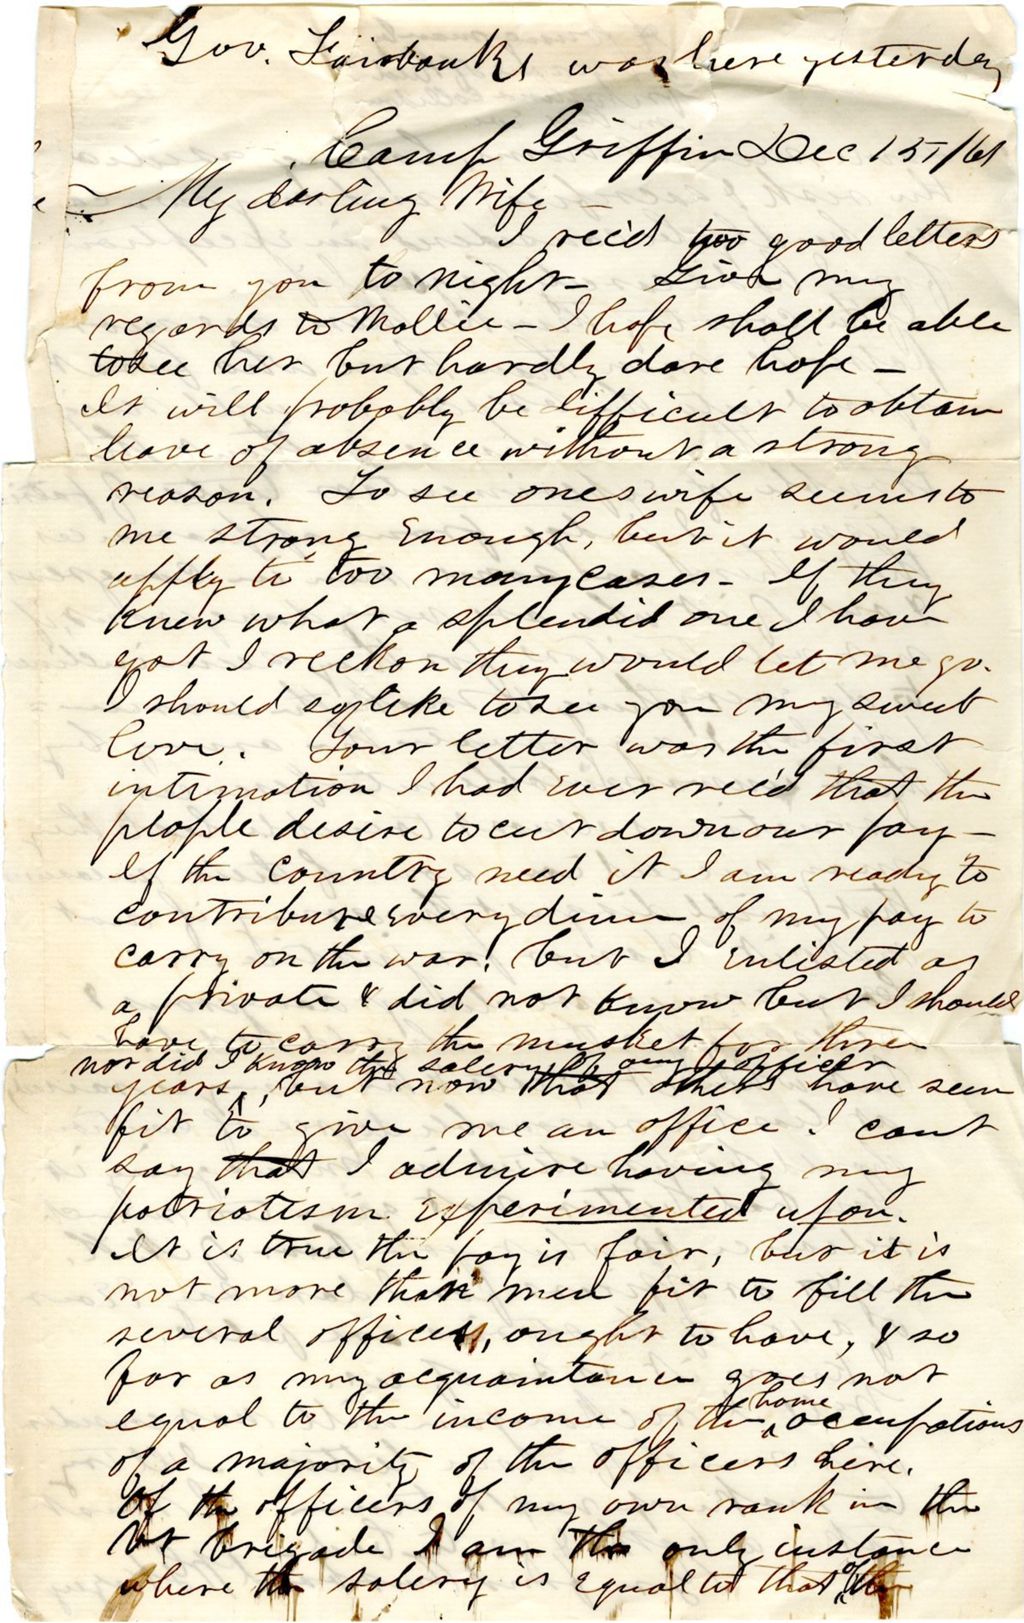 Gov. Fairbanks was here yesterday
Camp Griffin Dec 15/61
My darling Wife –
I rec'd too good letters
from you to night – Give my
regards to Mollie – I hope shall be able
to see her but hardly dare hope –
It will probably be difficult to obtain
leave of absence without a strong
reason. To see ones wife seems to
me strong enough, but it would
apply to too many cases – If they
knew what a splendid one I have
got I reckon they would let me go.
I should so like to see you my sweet
love. Your letter was the first
intimation I had ever rec'd that the
people desire to cut down our pay –
If the country need it I am ready to
contribute every dime of my pay to
carry on the war, but I enlisted as
a private & did not know but I should
have to carry the musket for three
nor did I know the salery of any officer
years, but now that others have seen
fit to give me an office I cant
say that I admire having my
patriotism experimented upon.
It is true the pay is fair, but it is
not more than men fit to fill the
several offices, ought to have, & so
far as my acquaintance goes not
equal to the income of the home occupations
of a majority of the officers here.
Of the officers of my own rank in the
Vt brigade I am the only instance
where the salery is equal to that of the